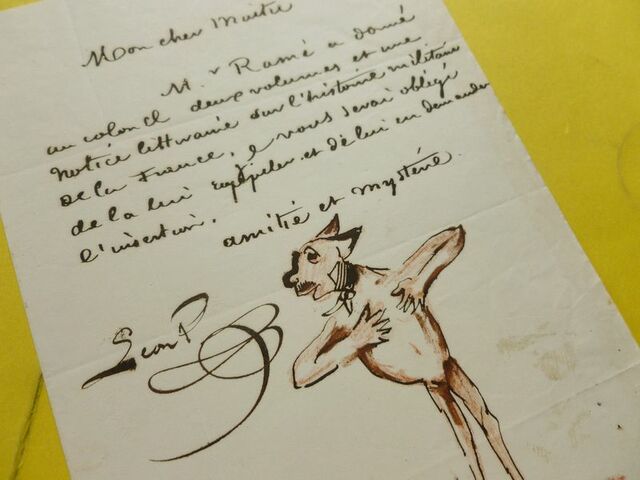 Mon cher Maitre
M. Ramé a donné
au colonel deux volumes et une
notice littéraire sur l'histoire militaire
de la France, je vous serai obligé
de la lui rappeler et de lui en demander
l'insertion.
amitié et mystère.
Leon P